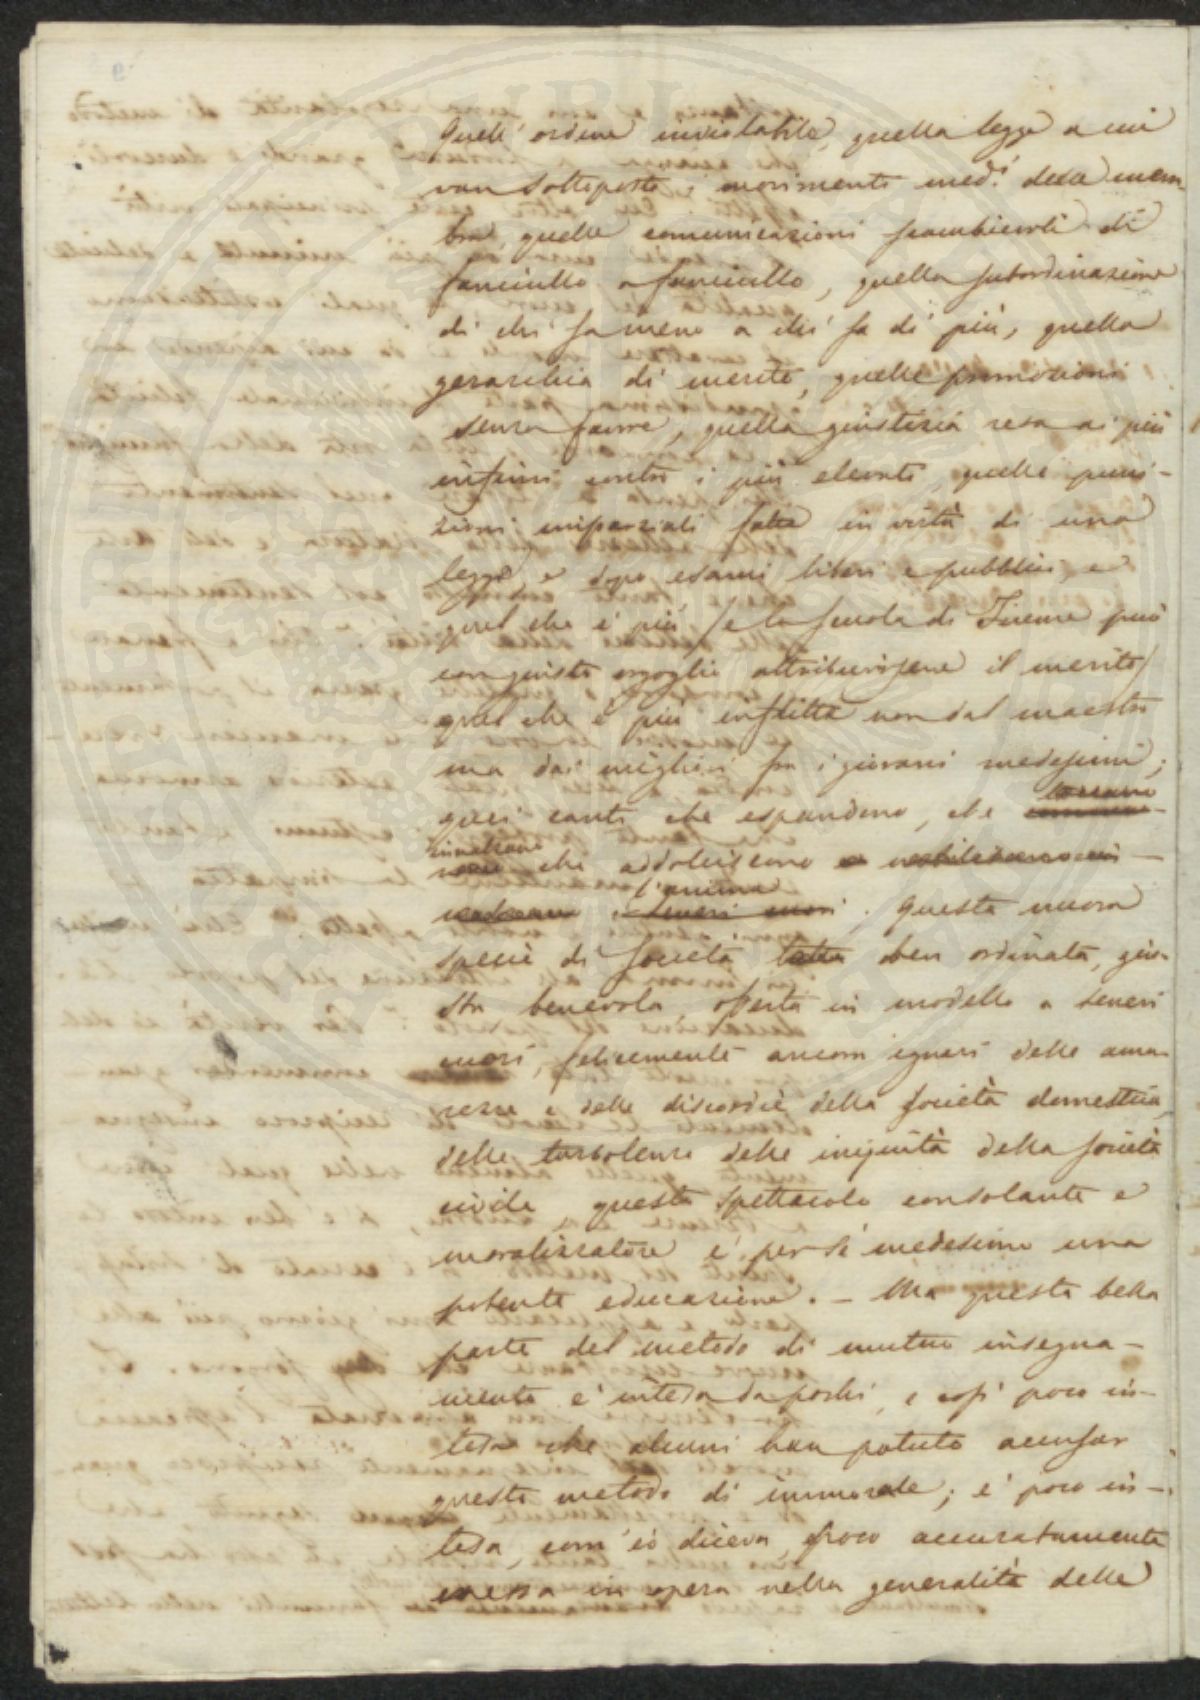 Quell' ordine inviolabile, quella legge a cui
van sottoposti i movimenti med.i delle mem-
bra, quelle comunicazioni scambievoli di
fanciullo a fanciullo, quella subordinazione
di chi sa meno a chi sa di più, quella
gerarchia di merito, quelle promozioni
senza favore, quella giustizia resa ai più
infimi contro i più elevati, quelle puni-
zioni imparziali fatte in virtù di una
legge, e dopo esami liberi e pubblici, e
quel che è più (e la scuola di Firenze può
con giusto orgoglio attribuirsene il merito)
quel che è più inflitte non dal maestro
ma dai migliori fra i giovani medesimi;
quei canti che espandono, che
innalzano che addolciscono
l'anima
i teneri cuori. Questa nuova
specie di società ben ordinata, giu-
sta benevola, offerta in modello a teneri
cuori, felicemente ancora ignari delle ama-
rezze e delle discordie della società domestica,
delle turbolenze delle iniquità della società
civile questo spettacolo consolante e
moralizzatore è per se medesimo una
potente educazione. – Ma questa bella
parte del metodo di mutuo insegna-
mento è intesa da pochi, e così poco in-
tesa che alcuni han potuto accusar
questo metodo di immorale; è poco in-
tesa, com' io diceva, poco accuratamente
messa in opera nella generalità delle